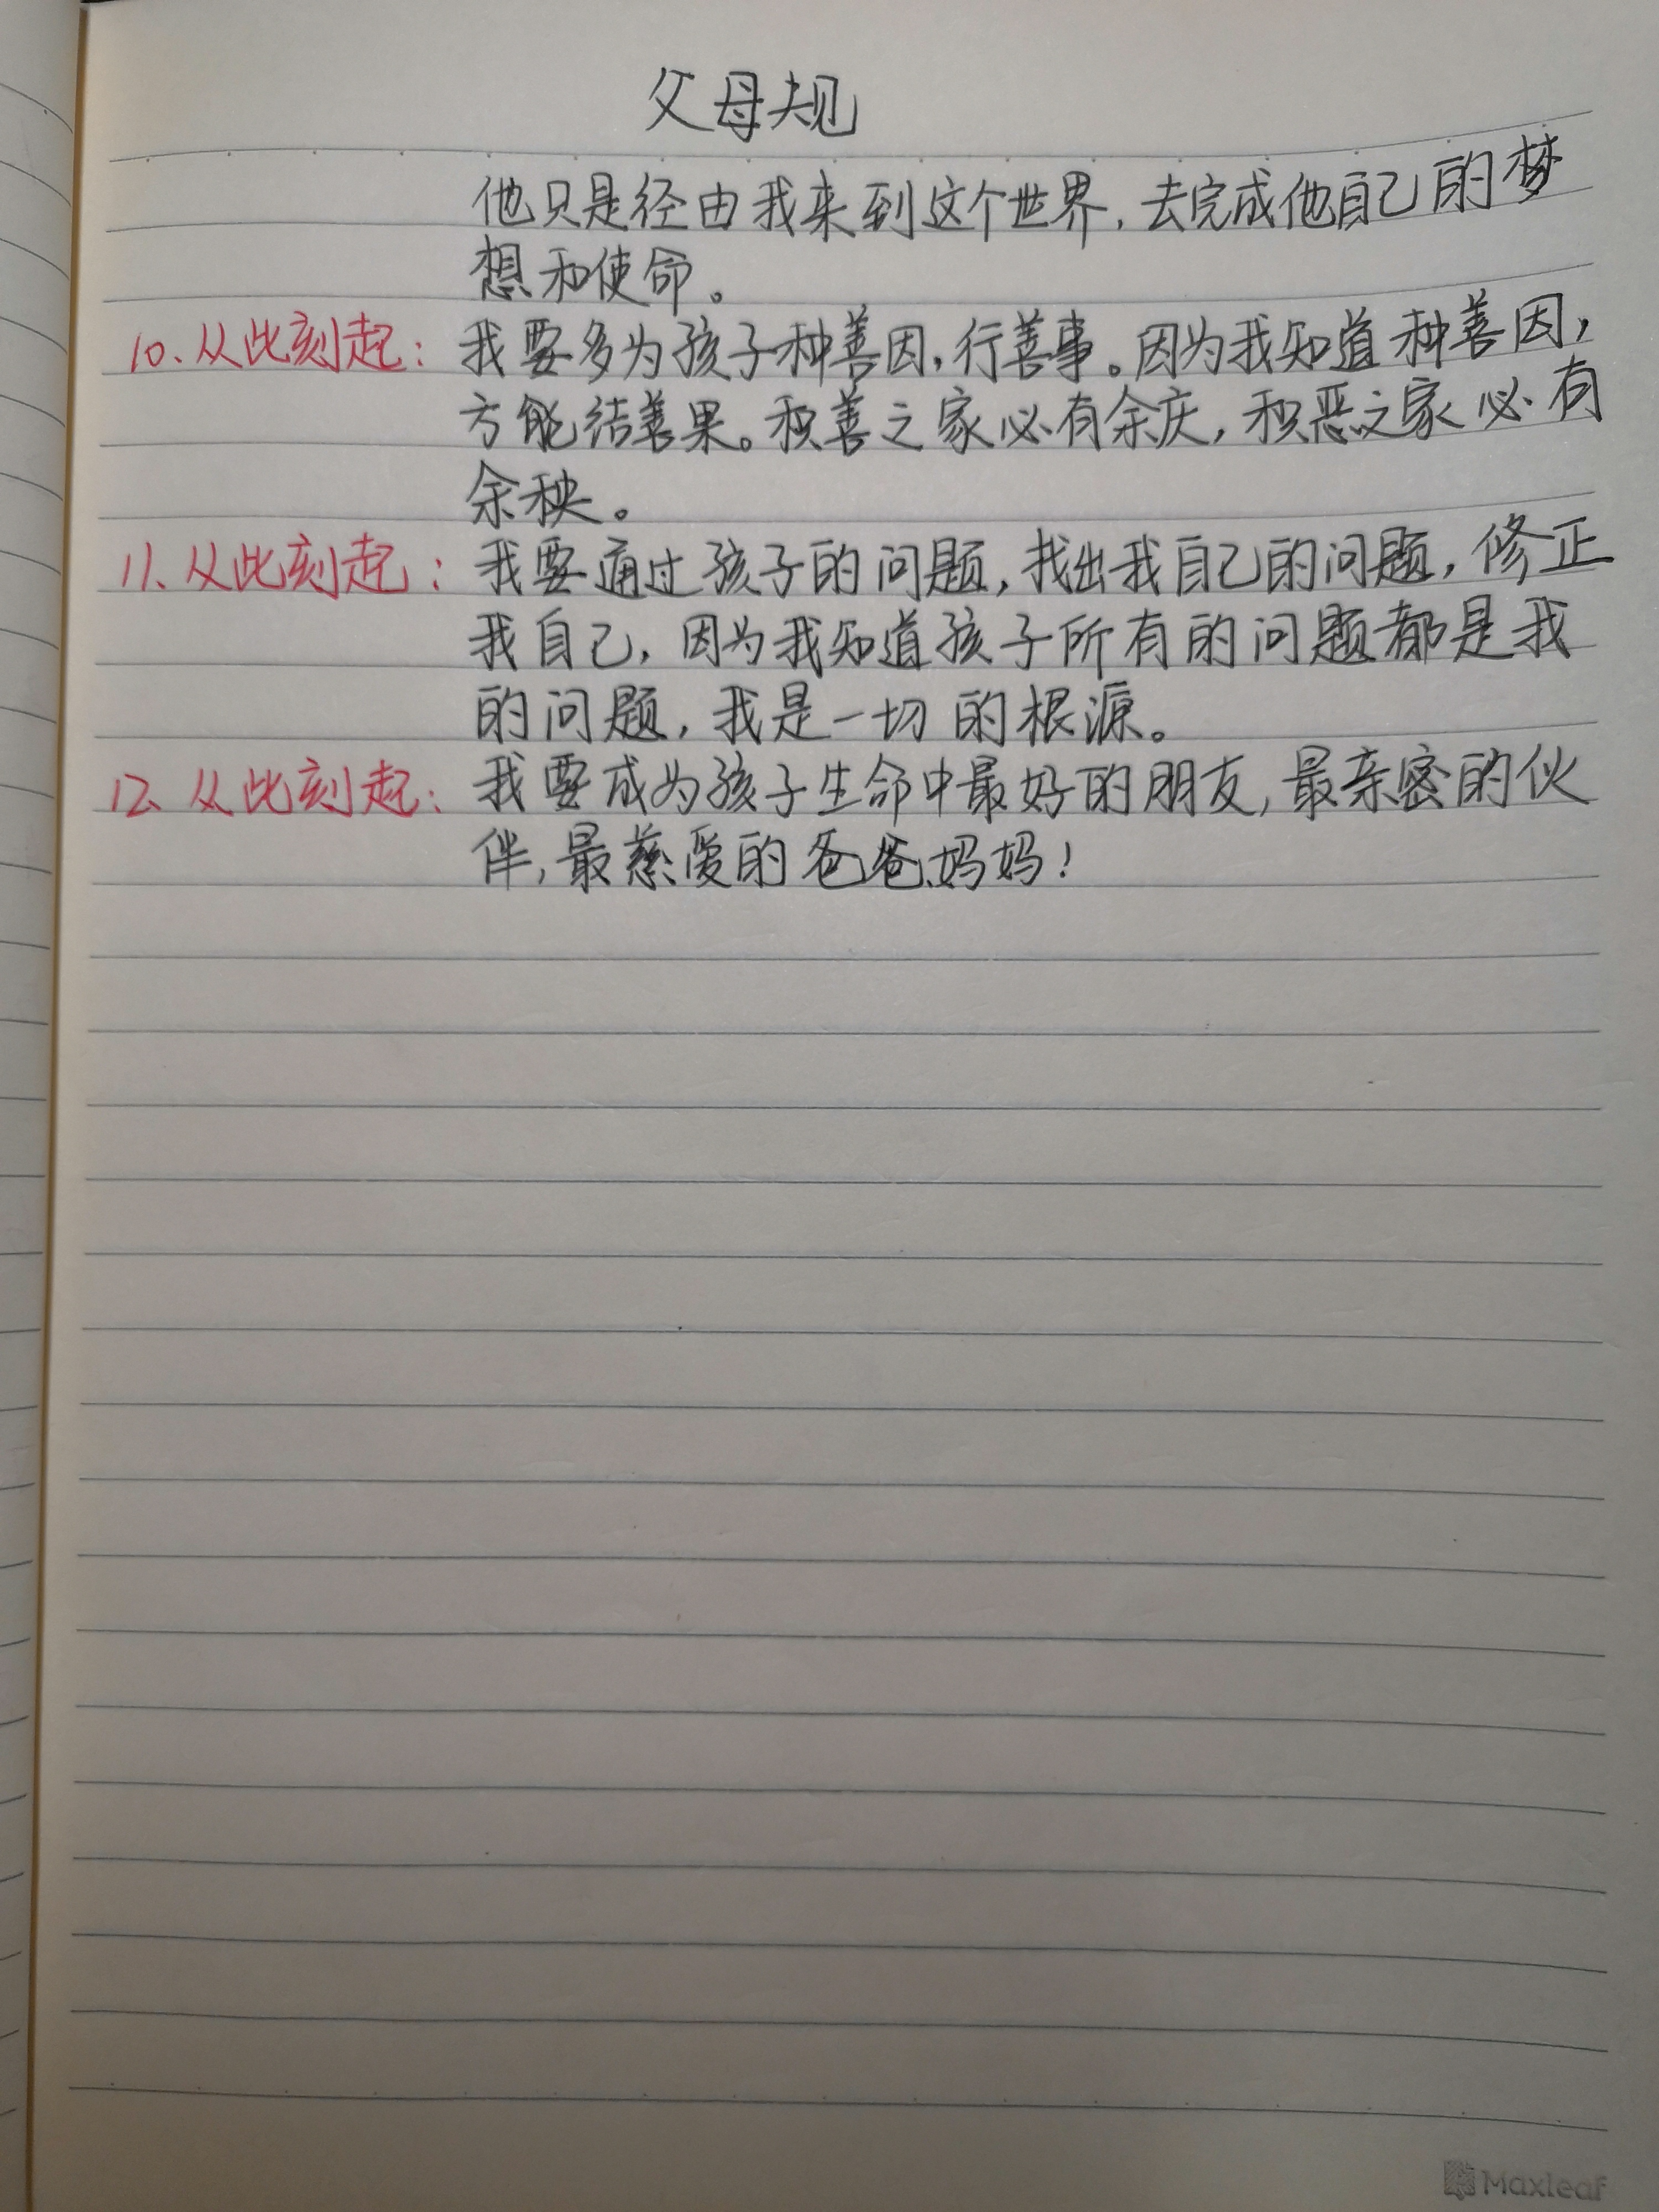 父母规
他只是经由我来到这个世界,去完成他自己的梦
想和使命。
10.从此刻起:我要多为孩子种善因,行善事。因为我知道种善因,
方能结善果。积善之家必有余庆,积恶之家必有
余秧。
11.从此刻起:我要通过孩子的问题,找出我自己的问题,修正
我自己,因为我知道孩子所有的问题都是我
的问题,我是一切的根源。
12.从此刻起:我要成为孩子生命中最好的朋友,最亲密的伙
伴,最慈爱的爸爸妈妈!
Maxleaf